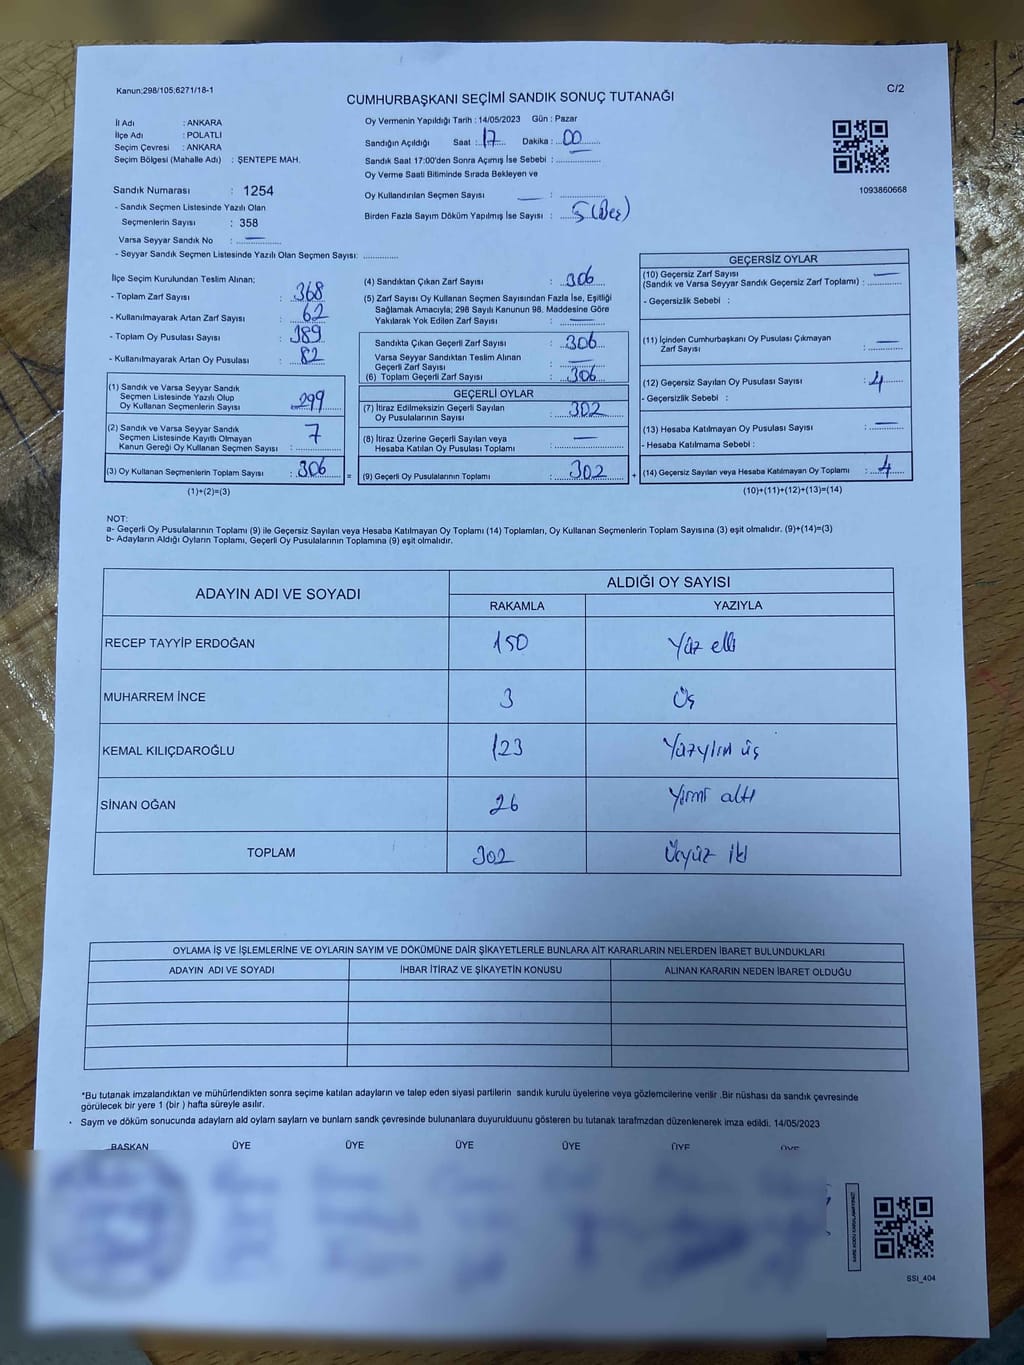 Kanun:298/105;6271/18-1
C/2
CUMHURBAŞKANI SEÇİMİ SANDIK SONUÇ TUTANAĞI
İl Adı : ANKARA
İlçe Adı : POLATLI
Seçim Çevresi : ANKARA
Seçim Bölgesi (Mahalle Adı) : ŞENTEPE MAH.
Sandık Numarası : 1254
- Sandık Seçmen Listesinde Yazılı Olan
Seçmenlerin Sayısı : 358
Varsa Seyyar Sandık No : —
- Seyyar Sandık Seçmen Listesinde Yazılı Olan Seçmen Sayısı: ..............
Oy Vermenin Yapıldığı Tarih : 14/05/2023 Gün : Pazar
Sandığın Açıldığı Saat : 17 Dakika : 00
Sandık Saat 17:00'den Sonra Açımış İse Sebebi : —
Oy Verme Saati Bitiminde Sırada Bekleyen ve
Oy Kullandırılan Seçmen Sayısı — :
Birden Fazla Sayım Döküm Yapılmış İse Sayısı : 5 (Beş)
1093860668
İlçe Seçim Kurulundan Teslim Alınan;
- Toplam Zarf Sayısı : 368
- Kullanılmayarak Artan Zarf Sayısı : 62
- Toplam Oy Pusulası Sayısı : 389
- Kullanılmayarak Artan Oy Pusulası : 82
(1) Sandık ve Varsa Seyyar Sandık
Seçmen Listesinde Yazılı Olup
Oy Kullanan Seçmenlerin Sayısı : 299
(2) Sandık ve Varsa Seyyar Sandık
Seçmen Listesinde Kayıtlı Olmayan
Kanun Gereği Oy Kullanan Seçmen Sayısı : 7
(3) Oy Kullanan Seçmenlerin Toplam Sayısı : 306 =
(1)+(2)=(3)
(4) Sandıktan Çıkan Zarf Sayısı : 306
(5) Zarf Sayısı Oy Kullanan Seçmen Sayısından Fazla İse, Eşitliği
Sağlamak Amacıyla; 298 Sayılı Kanunun 98. Maddesine Göre
Yakılarak Yok Edilen Zarf Sayısı : —
Sandıkta Çıkan Geçerli Zarf Sayısı : 306
Varsa Seyyar Sandıktan Teslim Alınan
Geçerli Zarf Sayısı : —
(6) Toplam Geçerli Zarf Sayısı : 306
GEÇERLİ OYLAR
(7) İtiraz Edilmeksizin Geçerli Sayılan
Oy Pusulalarının Sayısı : 302
(8) İtiraz Üzerine Geçerli Sayılan veya
Hesaba Katılan Oy Pusulası Toplamı : —
(9) Geçerli Oy Pusulalarının Toplamı : 302 +
GEÇERSİZ OYLAR
(10) Geçersiz Zarf Sayısı
(Sandık ve Varsa Seyyar Sandık Geçersiz Zarf Toplamı) : —
- Geçersizlik Sebebi :
(11) İçinden Cumhurbaşkanı Oy Pusulası Çıkmayan
Zarf Sayısı : —
(12) Geçersiz Sayılan Oy Pusulası Sayısı : 4
- Geçersizlik Sebebi :
(13) Hesaba Katılmayan Oy Pusulası Sayısı : —
- Hesaba Katılmama Sebebi :
(14) Geçersiz Sayılan veya Hesaba Katılmayan Oy Toplamı : 4
(10)+(11)+(12)+(13)=(14)
NOT:
a- Geçerli Oy Pusulalarının Toplamı (9) ile Geçersiz Sayılan veya Hesaba Katılmayan Oy Toplamı (14) Toplamları, Oy Kullanan Seçmenlerin Toplam Sayısına (3) eşit olmalıdır. (9)+(14)=(3)
b- Adayların Aldığı Oyların Toplamı, Geçerli Oy Pusulalarının Toplamına (9) eşit olmalıdır.
ADAYIN ADI VE SOYADI
ALDIĞI OY SAYISI
RAKAMLA YAZIYLA
RECEP TAYYİP ERDOĞAN 150 Yüz elli
MUHARREM İNCE 3 Üç
KEMAL KILIÇDAROĞLU 123 Yüzyirmi üç
SİNAN OĞAN 26 Yirmi altı
TOPLAM 302 Üçyüz iki
OYLAMA İŞ VE İŞLEMLERİNE VE OYLARIN SAYIM VE DÖKÜMÜNE DAİR ŞİKAYETLERLE BUNLARA AİT KARARLARIN NELERDEN İBARET BULUNDUKLARI
ADAYIN ADI VE SOYADI İHBAR İTİRAZ VE ŞİKAYETİN KONUSU ALINAN KARARIN NEDEN İBARET OLDUĞU
*Bu tutanak imzalandıktan ve mühürlendikten sonra seçime katılan adayların ve talep eden siyasi partilerin sandık kurulu üyelerine veya gözlemcilerine verilir .Bir nüshası da sandık çevresinde
görülecek bir yere 1 (bir ) hafta süreyle asılır.
- Saym ve döküm sonucunda adaylarn ald oylarn saylarn ve bunlarn sandk çevresinde bulunanlara duyurulduunu gösteren bu tutanak tarafmzdan düzenlenerek imza edildi. 14/05/2023
BAŞKAN ÜYE ÜYE ÜYE ÜYE ÜYE ÜYE
SSI_404